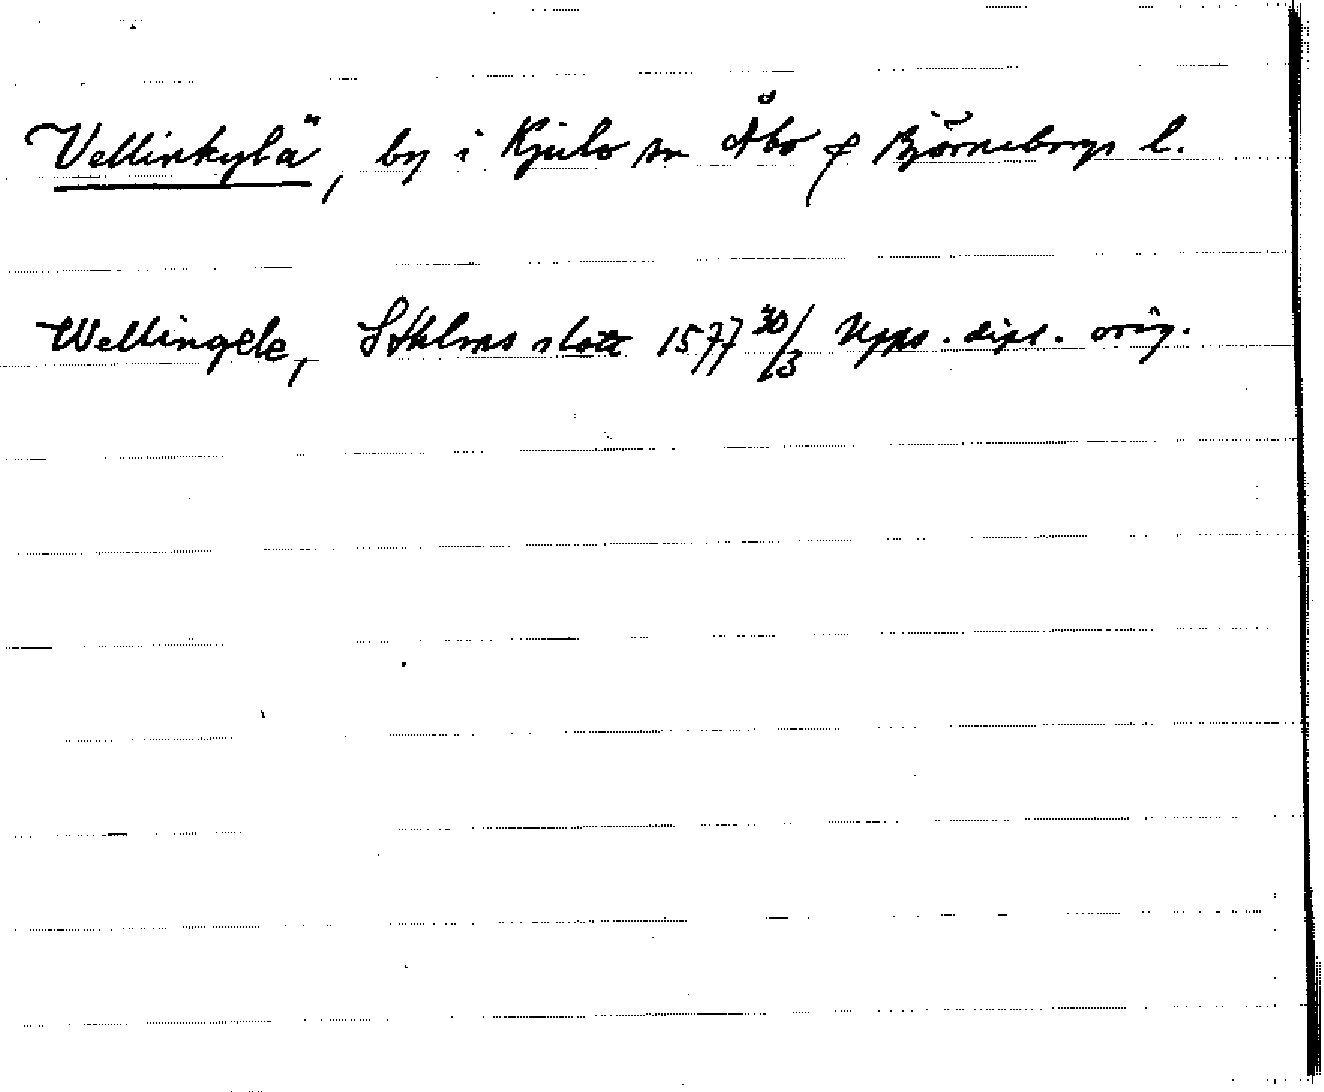 Vellinkylä, by i Kjulo sn Åbo o Björneborgs l.
Wellingele, Sthlms slott 1577 30/3 Upps. dipl. orig.